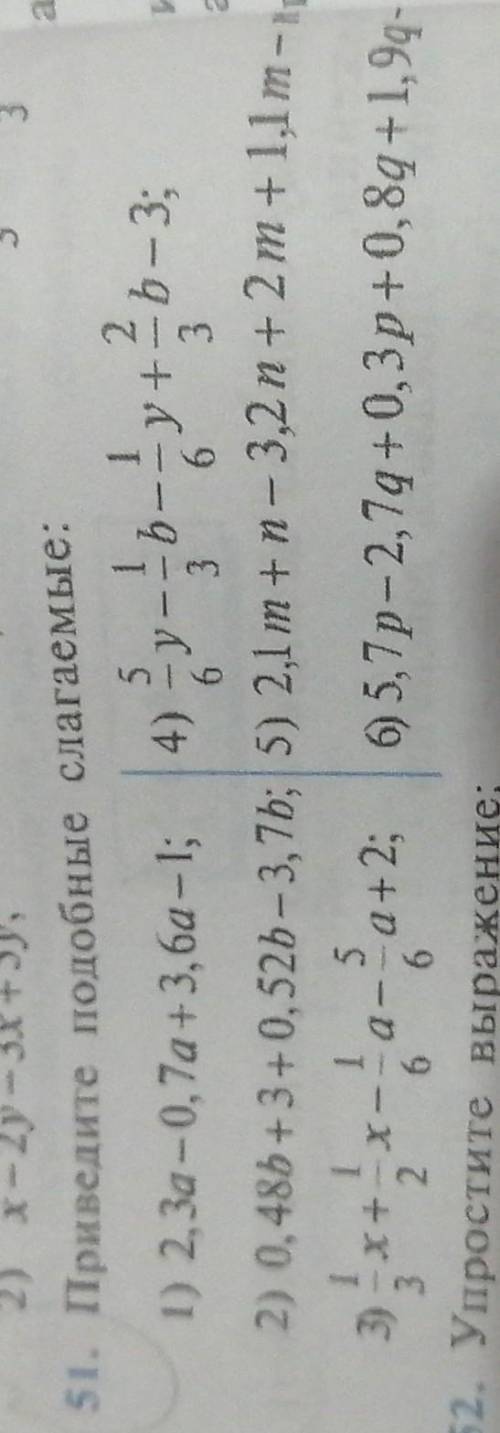 2) x − 2y − 3x + 5y;
51. Приведите подобные слагаемые:
1) 2,3a − 0,7a + 3,6a − 1;
2) 0,48b + 3 + 0,52b − 3,7b;
3) 1/3 x + 1/2 x − 1/6 a − 5/6 a + 2;
4) 5/6 y − 1/3 b − 1/6 y + 2/3 b − 3;
5) 2,1m + n − 3,2n + 2m + 1,1m −
6) 5,7p − 2,7q + 0,3p + 0,8q + 1,9q −
52. Упростите выражение: